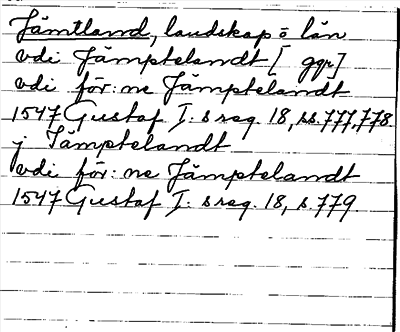 Jämtland, landskap o län
vdi Jämptelandt [ ggr]
vdi för:ne Jämptelandt
1547 Gustaf I:s reg. 18, ss. 777, 778.
j Jämptelandt
vdi för:ne Jämptelandt
1547 Gustaf I:s reg. 18, s. 779.